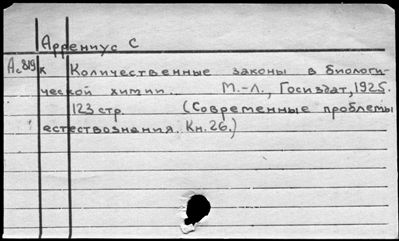 Аррениус С
Ас819к Количественные законы в биологи-
ческой химии. М.-Л., Госиздат, 1925.
123 стр. (Современные проблемы
естествознания. Кн. 26.)